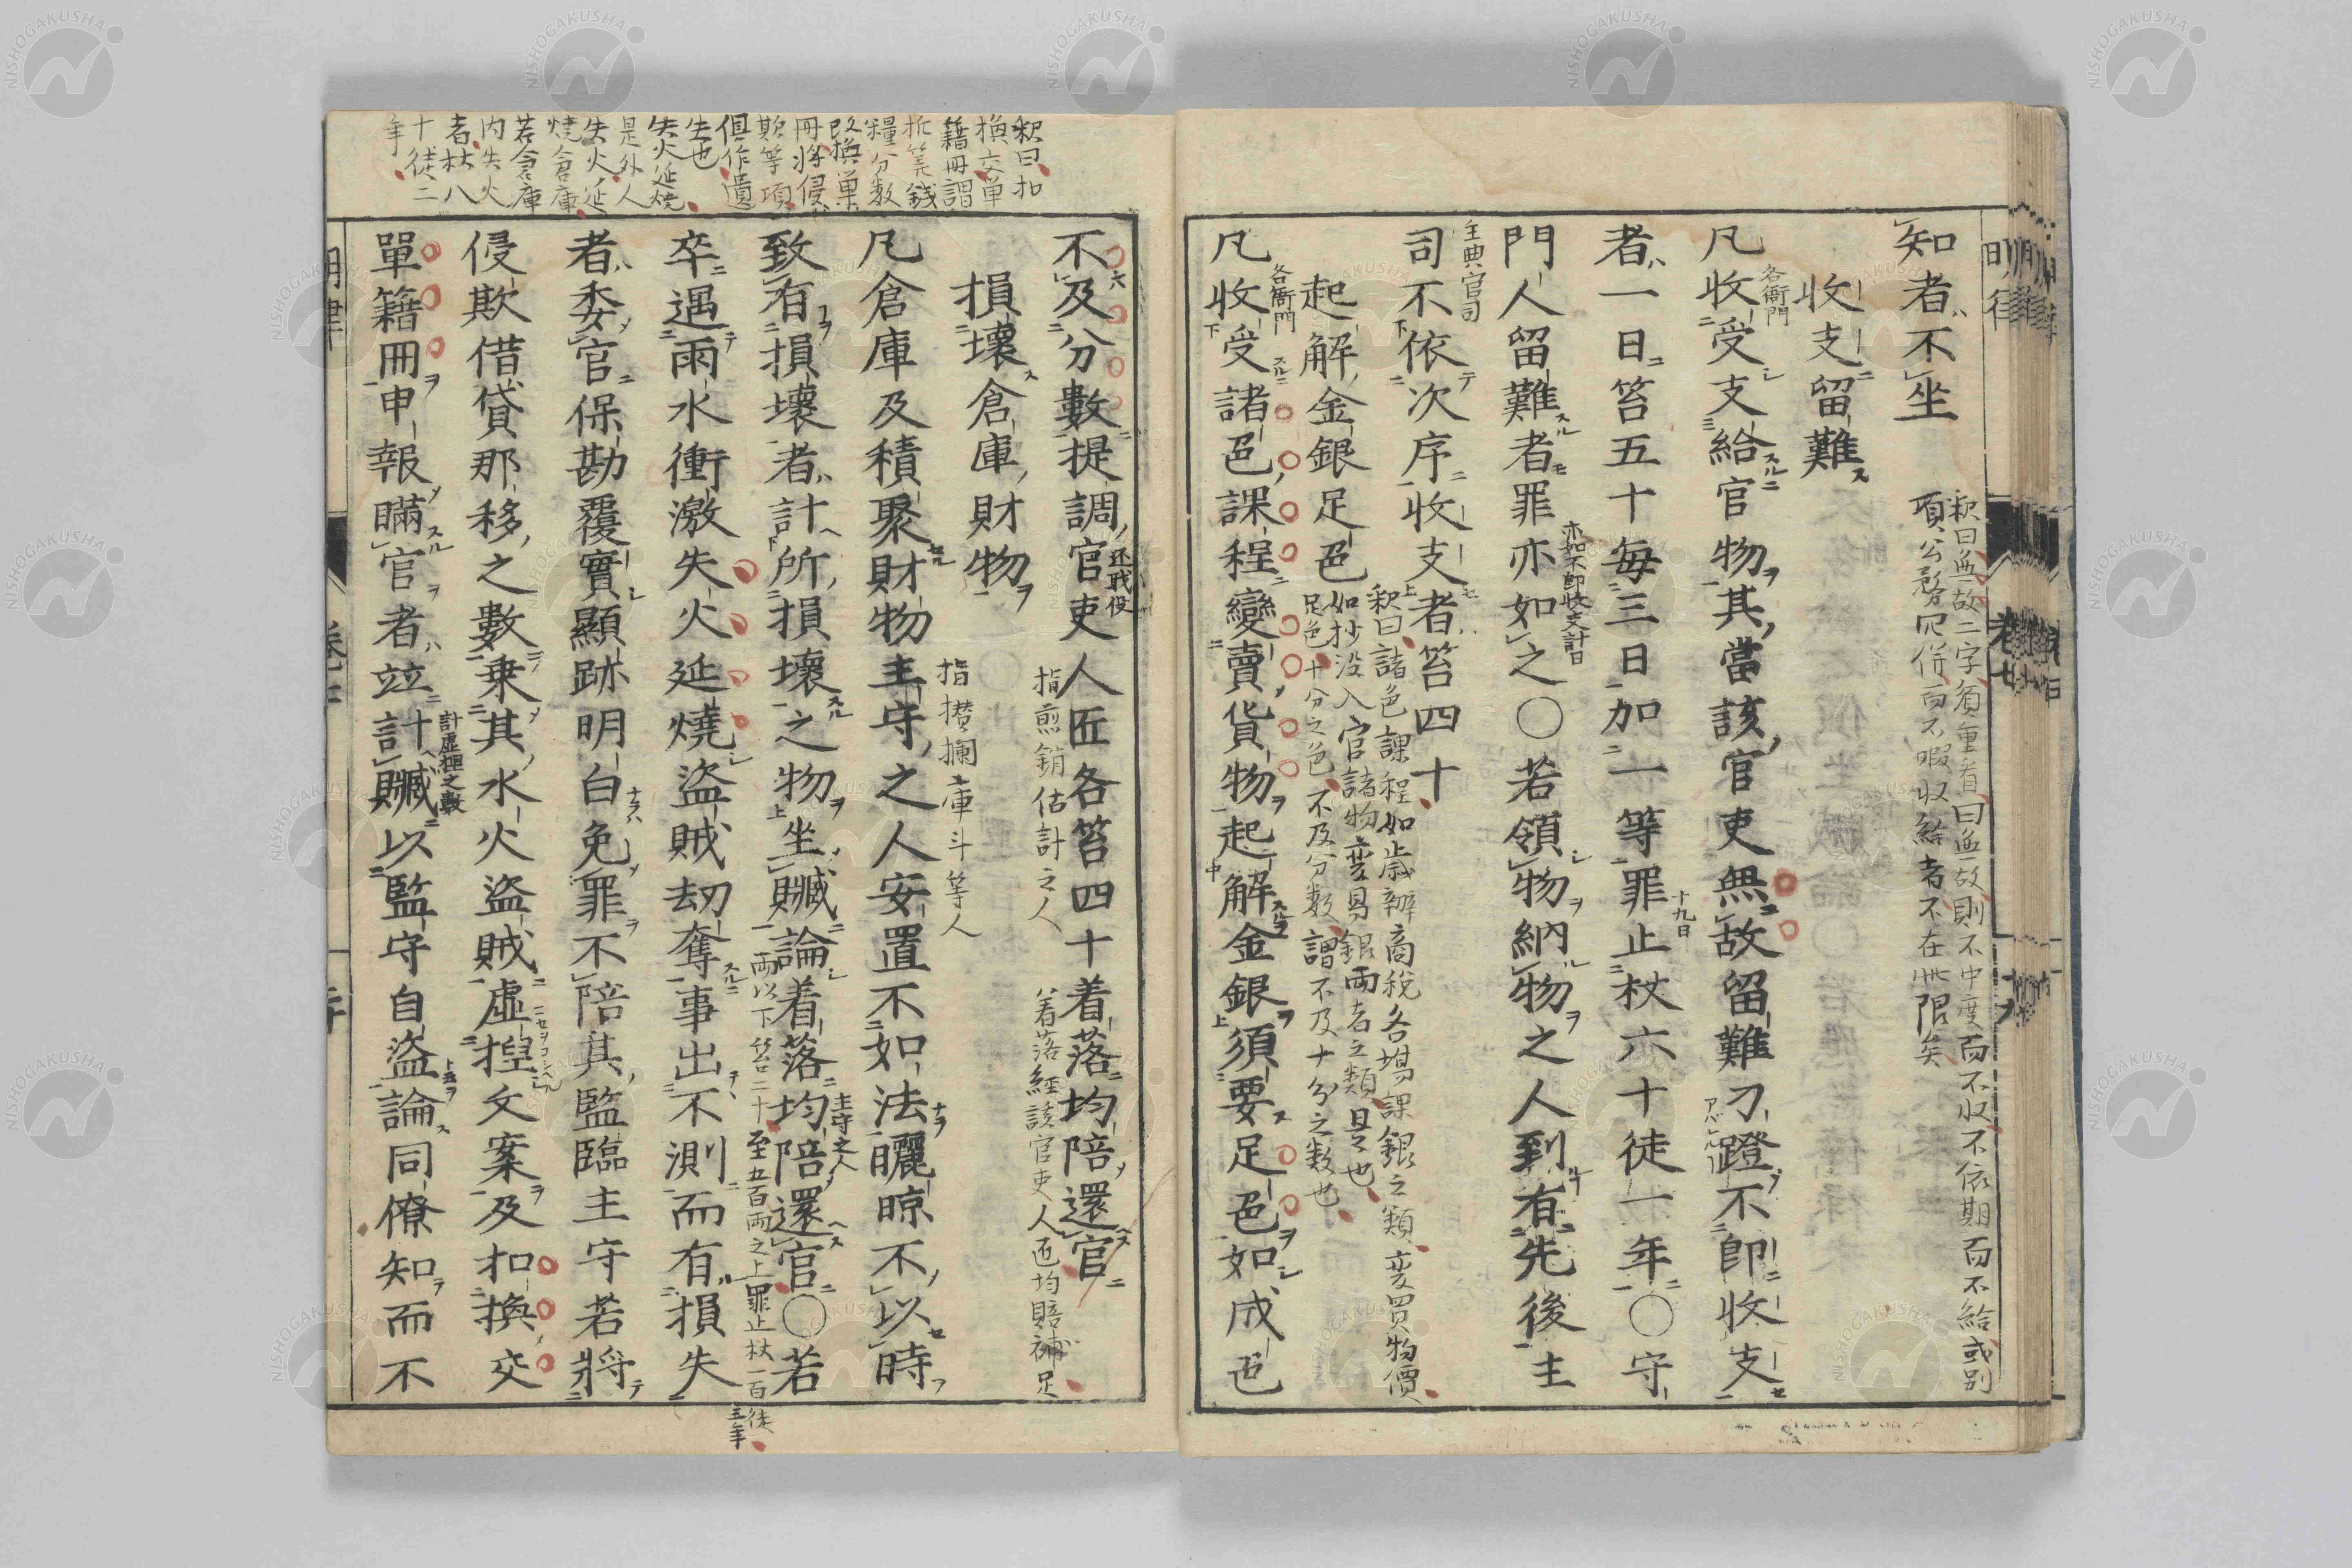 知者不坐
釈曰無故二字須重看曰無故則不中度而不収不依期而不給或別
項公務冗併而不暇収給者不在此限矣
收支留難
各衙門
凡收受支給官物其當該官吏無故留難刁蹬不即收支
者一日笞五十每三日加一等罪止杖六十徒一年〇守
十九日
門人留難者罪亦如之〇若領物納物之人到有先後主
亦如不即收支計日
主典官司
司不依次序收支者笞四十
釈曰諸色課程如歳辦商税各場課銀之類変買物價
如抄没入官諸物変易銀両者之類是也
起解金銀足色
足色十分之色不及分数謂不及十分之数也
各衙門
凡收受諸色課程變賣貨物起解金銀須要足色如成色
不及分數提調官吏人匠各笞四十着落均陪還官
还職役
指煎銷估計之人
着落經該官吏人匠均賠補足
損壞倉庫財物
指攅攔庫斗等人
凡倉庫及積聚財物主守之人安置不如法曬晾不以時
致有損壞者計所損壞之物坐贓論着落均陪還官〇若
主守之人
一両以下笞二十至五百両之上罪止杖一百徒三年
卒遇雨水衝激失火延燒盜賊劫奪事出不測而有損失
者委官保勘覆實顯跡明白免罪不陪其監臨主守若將
侵欺借貸那移之數乗其水火盜賊虛捏文案及扣換交
計虛捏之數
單籍冊申報瞞官者竝計贓以監守自盜論同僚知而不
釈曰扣
換交単
籍冊謂
折筭錢
糧分数
改換単
冊将侵
欺等項
俱作遺
失也
失火延焼
是外人
失火延
焼倉庫
若倉庫
内失火
者杖八
十徒二
年
明律